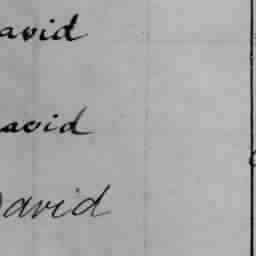 avid
avid
David